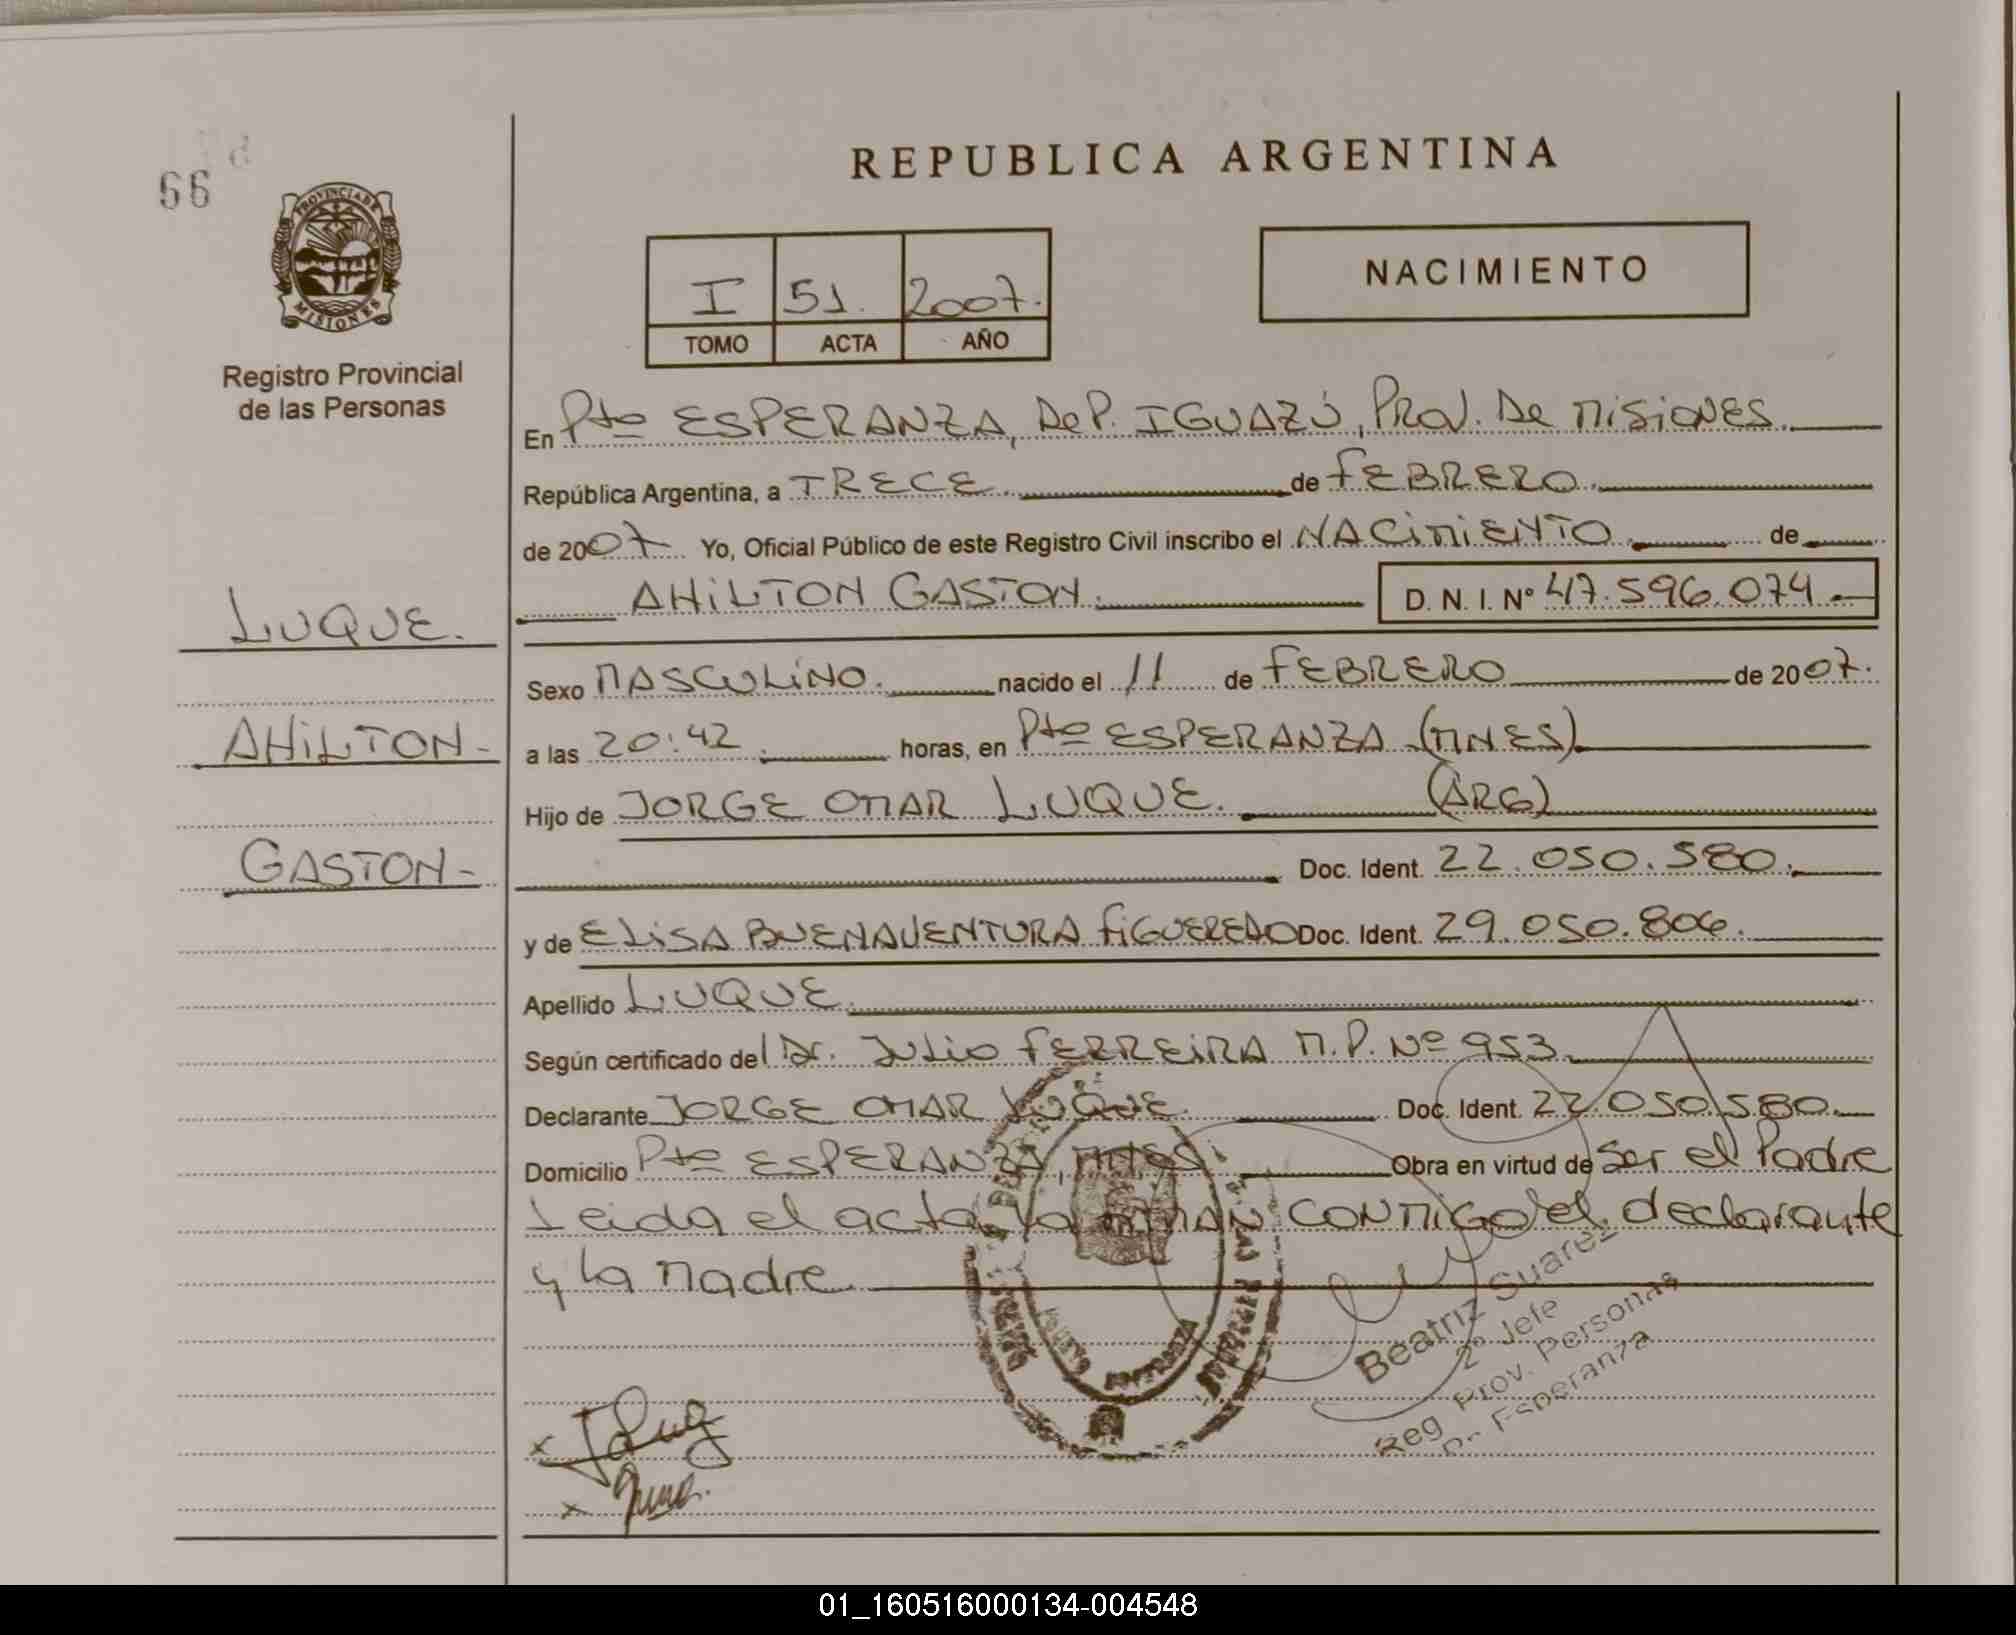 66
PROVINCIA DE
MISIONES
Registro Provincial
de las Personas
LUQUE.
AHILTON-
GASTON-
REPUBLICA ARGENTINA
I 51. 2007.
TOMO ACTA AÑO
NACIMIENTO
En Pto ESPERANZA, DeP. IGUAZÚ, PROV. De MISIONES.
República Argentina, a TRECE. de FEBRERO.
de 2007 Yo, Oficial Público de este Registro Civil inscribo el NACIMIENTO de
AHILTON GASTON. D. N. I. Nº 47.596.074.-
Sexo MASCULINO. nacido el 11 de FEBRERO de 2007.
a las 20:42. horas, en Pto ESPERANZA (MNES)
Hijo de JORGE OMAR LUQUE. (ARG)
Doc. Ident. 22.050.580.
y de ELISA BUENAVENTURA FIGUEREDO Doc. Ident. 29.050.806.
Apellido LUQUE.
Según certificado del Dr. JULIO FERREIRA M.P. Nº 953
Declarante JORGE OMAR LUQUE. Doc. Ident. 22.050.580.
Domicilio Pto ESPERANZA, MNES. Obra en virtud de Ser el Padre
Leida el acta, la firman conmigo el declarante
y la madre.
PUERTO ESPERANZA
Beatriz Suarez
2º Jefe
Reg Prov. Personas
Esperanza
01_160516000134-004548